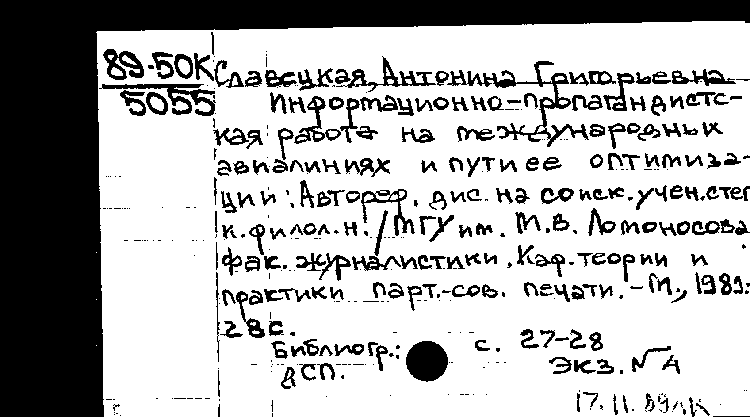 89-50К
5055
Славецкая, Антонина Григорьевна
Информационно-пропагандистс-
кая работа на международных
авиалиниях и пути ее оптимиза-
ции: Автореф. дис. на соиск. учен. степ
к. филол. н. / МГУ им. М.В. Ломоносова
фак. журналистики. Каф. теории и
практики парт.-сов. печати. - М., 1989.-
28 с.
Библиогр.: с. 27-28
ДСП. экз. № А
17.11.89